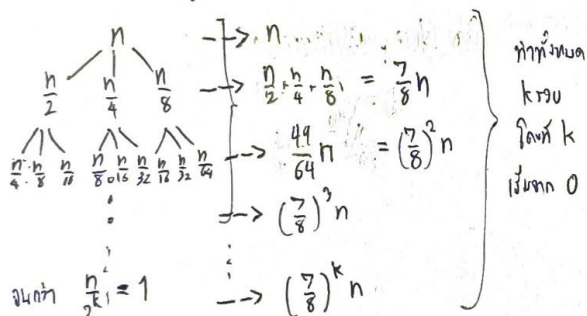 n --> n
n/2 n/4 n/8 --> n/2 + n/4 + n/8 = 7/8 n
n/4 n/8 n/16 n/8 n/16 n/32 n/16 n/32 n/64 --> 49/64 n = (7/8)^2 n
--> (7/8)^3 n
จนกว่า n/2^k = 1 --> (7/8)^k n
ทำทั้งหมด
k รอบ
โดยที่ k
เริ่มจาก 0